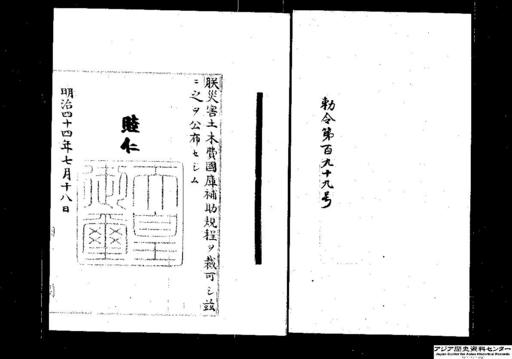 勅令第百九十九号
朕災害土木費國庫補助規程ヲ裁可シ茲
ニ之ヲ公布セシム
睦仁
天皇御璽
明治四十四年七月十八日
アジア歴史資料センター
Japan Center for Asian Historical Records